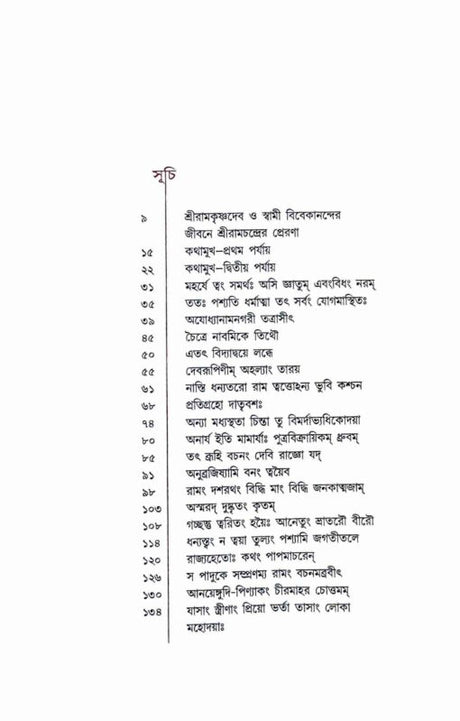 সূচি
৯ শ্রীরামকৃষ্ণদেব ও স্বামী বিবেকানন্দের
জীবনে শ্রীরামচন্দ্রের প্রেরণা
১৫ কথামুখ–প্রথম পর্যায়
২২ কথামুখ–দ্বিতীয় পর্যায়
৩১ মহর্ষে ত্বং সমর্থঃ অসি জ্ঞাতুম্ এবংবিধং নরম্
৩৫ ততঃ পশ্যতি ধর্মাত্মা তৎ সর্বং যোগমাস্থিতঃ
৩৯ অযোধ্যানামনগরী তত্রাসীৎ
৪৫ চৈত্রে নাবমিকে তিথৌ
৫০ এতৎ বিদ্যাদ্বয়ে লব্ধে
৫৫ দেবরূপিণীম্ অহল্যাং তারয়
৬১ নাস্তি ধন্যতরো রাম ত্বত্তোহন্য ভুবি কশ্চন
৬৮ প্রতিগ্রহো দাতৃবশঃ
৭৪ অন্যা মধ্যস্থতা চিন্তা তু বিমর্দাভ্যধিকোদয়া
৮০ অনার্য ইতি মামার্যাঃ পুত্রবিক্রায়িকম্ ধ্রুবম্
৮৫ তৎ ব্রূহি বচনং দেবি রাজ্ঞো যদ্
৯১ অনুব্রজিষ্যামি বনং ত্বয়ৈব
৯৮ রামং দশরথং বিদ্ধি মাং বিদ্ধি জনকাত্মজাম্
১০৩ অস্মরদ্ দুষ্কৃতং কৃতম্
১০৮ গচ্ছন্তু ত্বরিতং হয়ৈঃ আনেতুং ভ্রাতরৌ বীরৌ
১১৪ ধন্যস্ত্বং ন ত্বয়া তুল্যং পশ্যামি জগতীতলে
১২০ রাজ্যহেতোঃ কথং পাপমাচরেন্
১২৬ স পাদুকে সম্প্রণম্য রামং বচনমব্রবীৎ
১৩০ আনয়েঙ্গুদি-পিণ্যাকং চীরমাহর চোত্তমম্
১৩৪ যাসাং স্ত্রীণাং প্রিয়ো ভর্তা তাসাং লোকা
মহোদয়াঃ